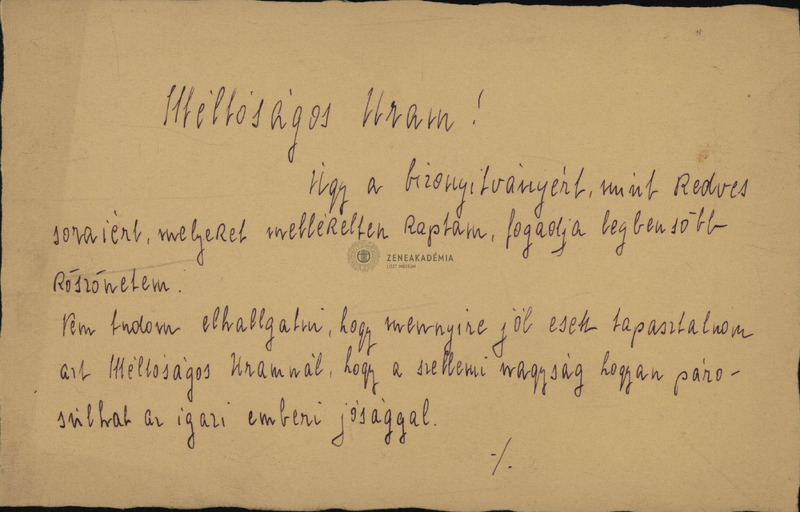 Méltóságos Uram!
Úgy a bizonyitványért, mint kedves
soraiért, melyeket mellékelten kaptam, fogadja legbensőbb
köszönetem.
Nem tudom elhallgatni, hogy mennyire jól esett tapasztalnom
azt Méltóságos Uramnál, hogy a szellemi nagyság hogyan páro-
sulhat az igazi emberi jósággal.
./.
ZENEAKADÉMIA
LISZT MÚZEUM